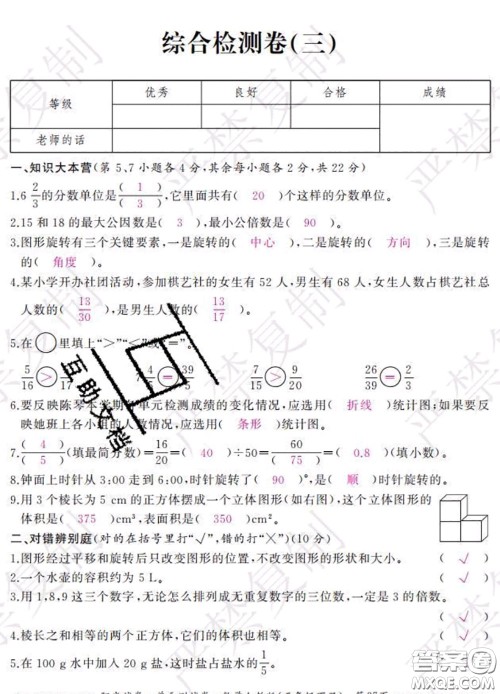 综合检测卷(三)
等级 优秀 良好 合格 成绩
老师的话
一、知识大本营(第5、7小题各4分,其余每小题各2分,共22分)
1.6 2/3 的分数单位是( 1/3 ),它里面共有( 20 )个这样的分数单位。
2.15和18的最大公因数是( 3 ),最小公倍数是( 90 )。
3.图形旋转有三个关键要素,一是旋转的( 中心 ),二是旋转的( 方向 ),三是旋转
的( 角度 )。
4.某小学开办社团活动,参加棋艺社的女生有52人,男生有68人,女生人数占棋艺社总
人数的( 13/30 ),是男生人数的( 13/17 )。
5.在○里填上“>”“<”或“=”。
5/16 > 5/17 7 4/5 = 39/5 7/15 > 9/20 26/39 = 2/3
6.要反映陈琴本学期 单元检测成绩的变化情况,应选用( 折线 )统计图;如果要反
映她班上各小组的人数情况,应选用( 条形 )统计图。
7.( 4 )/( 5 )(填最简分数)=16/20=( 40 )÷50=60/( 75 )=( 0.8 )(填小数)。
8.钟面上时针从3:00走到6:00,时针旋转了( 90 )°,是( 顺 )时针旋转的。
9.用3个棱长为5 cm的正方体摆成一个立体图形(如右图),这个立体图形的
体积是( 375 )cm³,表面积是( 350 )cm²。
二、对错辨别庭(对的在括号里打“√”,错的打“×”)(10分)
1.图形经过平移和旋转后只改变图形的位置,不改变图形的形状和大小。 ( √ )
2.一个水壶的容积约为5 L。 ( √ )
3.用1,8,9这三个数字,无论怎么排列成无重复数字的三位数,一定是3的倍数。
( √ )
4.棱长之和相等的两个正方体,它们的体积也相等。 ( √ )
5.在100 g水中加入20 g盐,这时盐占盐水的1/5。
严禁复制
互助文档